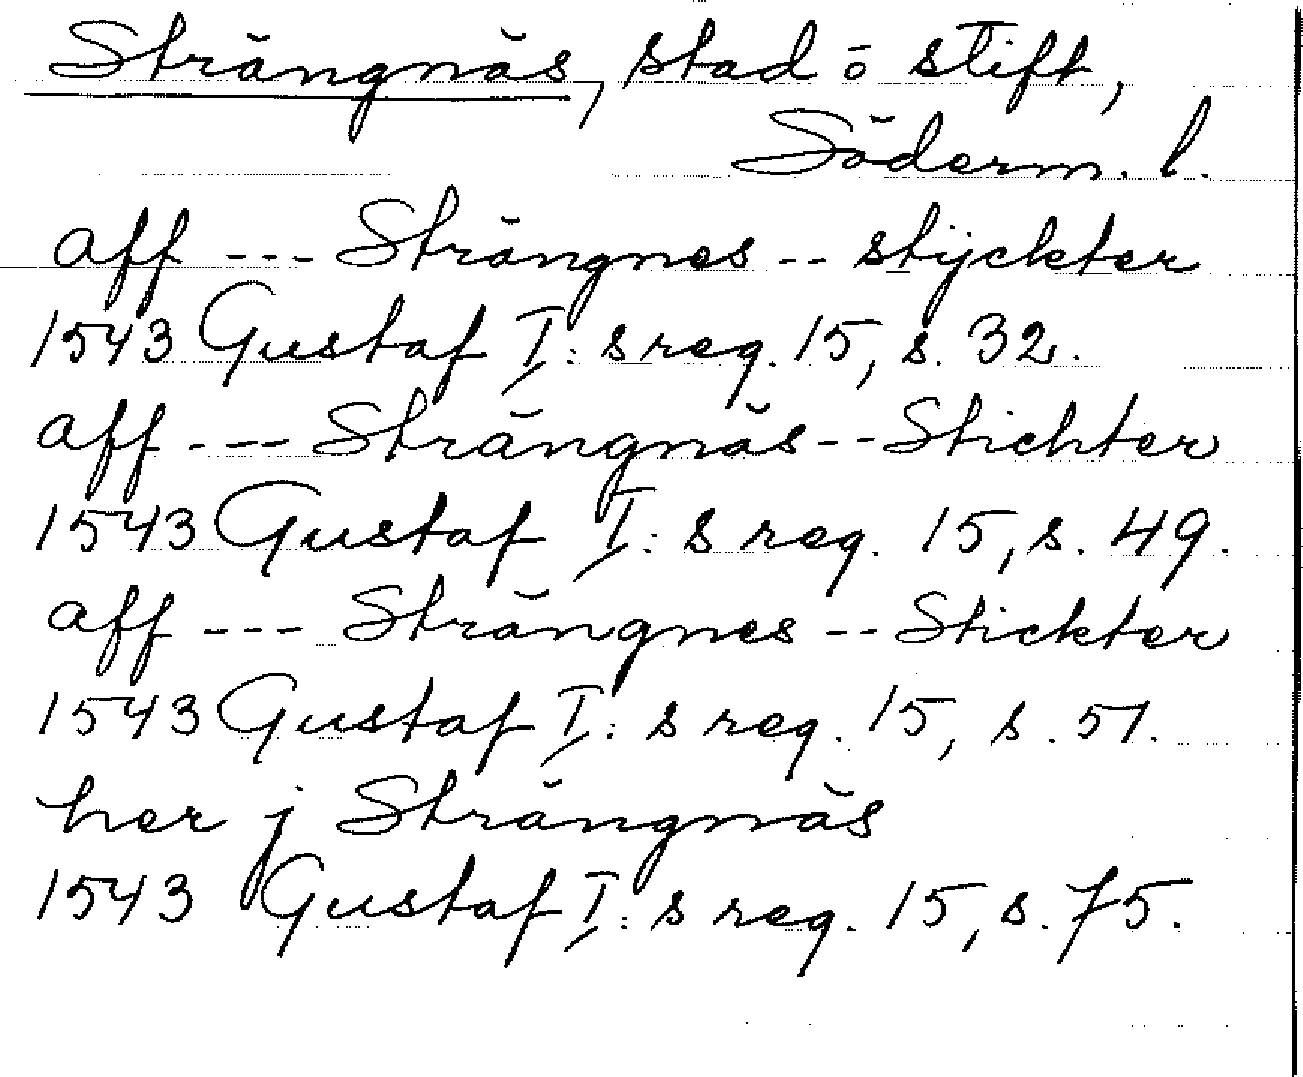 Strängnäs, stad o stift,
Söderm. l.
aff --- Strängnes -- stÿckter
1543 Gustaf I:s reg. 15, s. 32.
aff --- Strängnäs -- Stichter
1543 Gustaf I:s reg. 15, s. 49.
aff --- Strängnes -- Stickter
1543 Gustaf I:s reg. 15, s. 51.
her j Strängnäs
1543 Gustaf I:s reg. 15, s. 75.